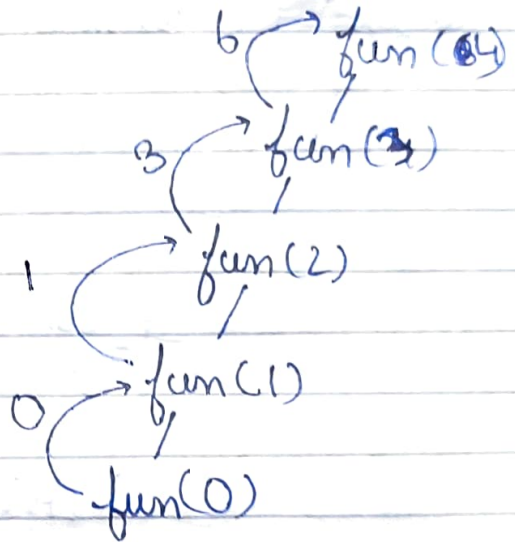 6 fun(4)
3 fun(3)
1 fun(2)
0 fun(1)
fun(0)